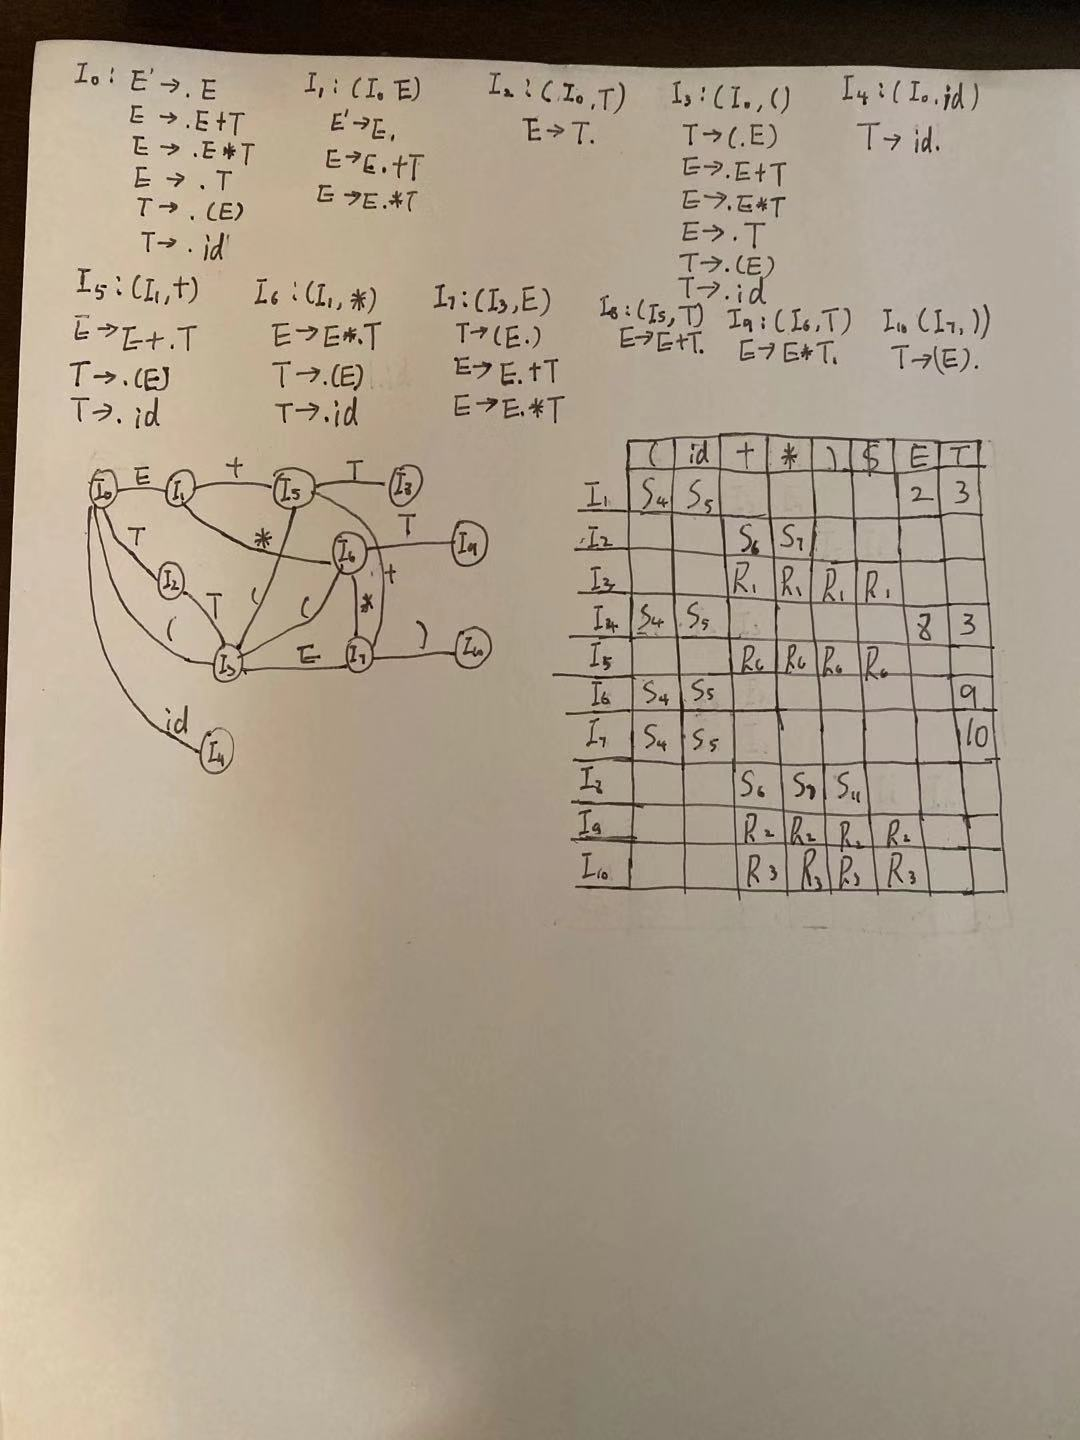 I₀: E'→.E
E→.E+T
E→.E*T
E→.T
T→.(E)
T→.id
I₁: (I₀ E)
E'→E.
E→E.+T
E→E.*T
I₂: (I₀,T)
E→T.
I₃: (I₀,()
T→(.E)
E→.E+T
E→.E*T
E→.T
T→.(E)
T→.id
I₄: (I₀.id)
T→id.
I₅: (I₁,+)
E→E+.T
T→.(E)
T→.id
I₆: (I₁,*)
E→E*.T
T→.(E)
T→.id
I₇: (I₃,E)
T→(E.)
E→E.+T
E→E.*T
I₈: (I₅,T)
E→E+T.
I₉: (I₆,T)
E→E*T.
I₁₀ (I₇,))
T→(E).
I₀ E I₁ + I₅ T I₈
T * I₆ T I₉
I₂ T ( ( * +
( I₃ E I₇ ) I₁₀
id I₄
( id + * ) $ E T
I₁ S₄ S₅ 2 3
I₂ S₆ S₇
I₃ R₁ R₁ R₁ R₁
I₄ S₄ S₅ 8 3
I₅ R₆ R₆ R₆ R₆
I₆ S₄ S₅ 9
I₇ S₄ S₅ 10
I₈ S₆ S₇ S₁₁
I₉ R₂ R₂ R₂ R₂
I₁₀ R₃ R₃ R₃ R₃